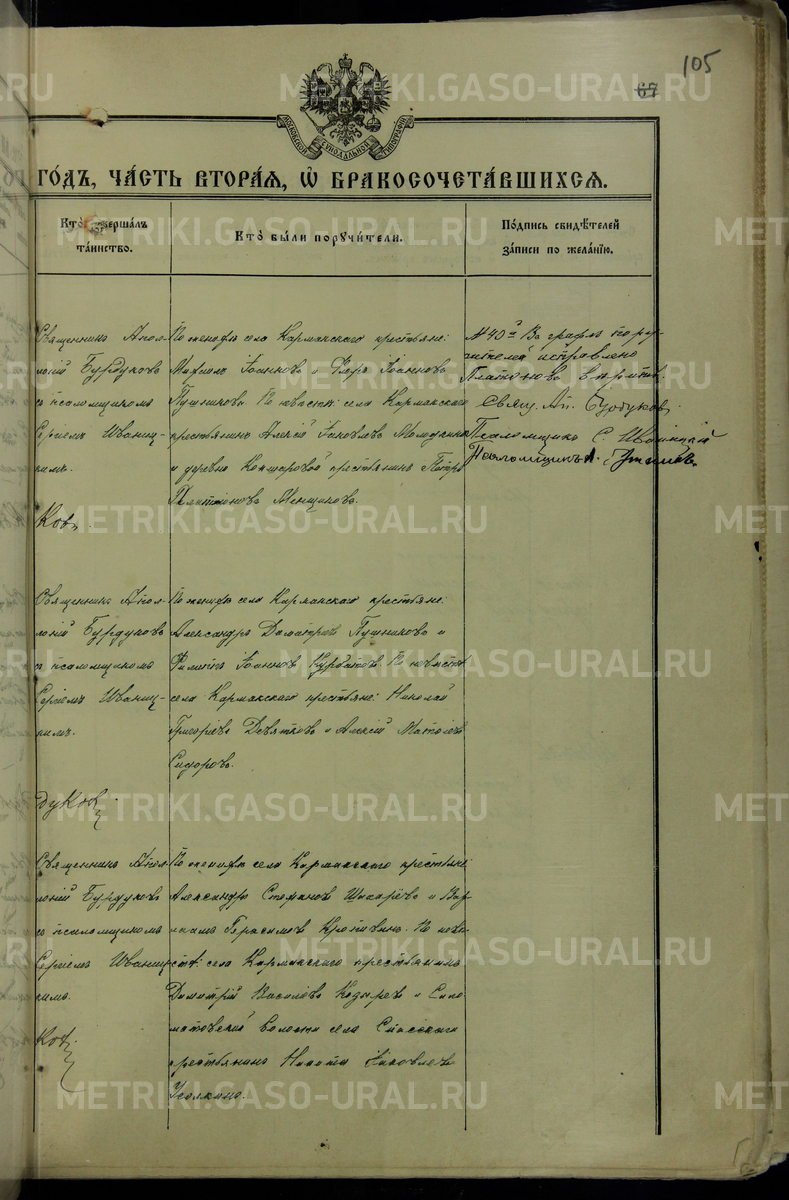 105
67
МОСКОВСКОЙ СѴНОДАЛЬНОЙ ТИПОГРАФІИ
ГО́ДЪ, ЧА́СТЬ ВТОРА́Ѧ, Ѡ҆ БРАКОСОЧЕТА́ВШИХСѦ.
Кто̀ соверша́лъ
та́инство.
Кто̀ бы́ли порꙋчи́тели.
По́дпись свидѣ́телей
за́писи по жела́нїю.
Священникъ Апол-
лоній Бурдуковъ
съ псаломщикомъ
Сергіемъ Иваниц-
кимъ.
Ков
По женихѣ села Кармакскаго крестьяне:
Іоанновъ и Іоанновъ
Пушниковъ По невѣстѣ: села Кармакскаго
крестьянинъ Алексій Іаковлевъ
и деревни крестьянинъ Петръ
Платоновъ Менщиковъ.
№ 40й Въ графѣ пору-
чителей исправлено
Платоновъ
Свящ. Ап. Бурдуковъ.
Псаломщикъ С. Иваницкій
Псаломщикъ А.
Священникъ Апол-
лоній Бурдуковъ
съ псаломщикомъ
Сергіемъ Иваниц-
кимъ.
дуков
По женихѣ села Кармакскаго крестьяне:
Александръ Димитріевъ Пушниковъ и
Филиппъ Іоанновъ Курбатовъ По невѣстѣ
села Кармакскаго крестьяне: Николай
Григорьевъ Девятковъ и Алексій
Сидоровъ.
Священникъ Апол-
лоній Бурдуковъ
съ псаломщикомъ
Сергіемъ Иваниц-
кимъ.
Ков
По женихѣ села Кармакскаго крестьяне:
Александръ Стефановъ и Вар-
лаамъ Герасимовъ По невѣ-
стѣ: села Кармакскаго крестьянинъ
Димитрій Василіевъ и
волости села Спасскаго
крестьянинъ Никита Іаковлевъ
Усолкинъ.
METRIKI.GASO-URAL.RU